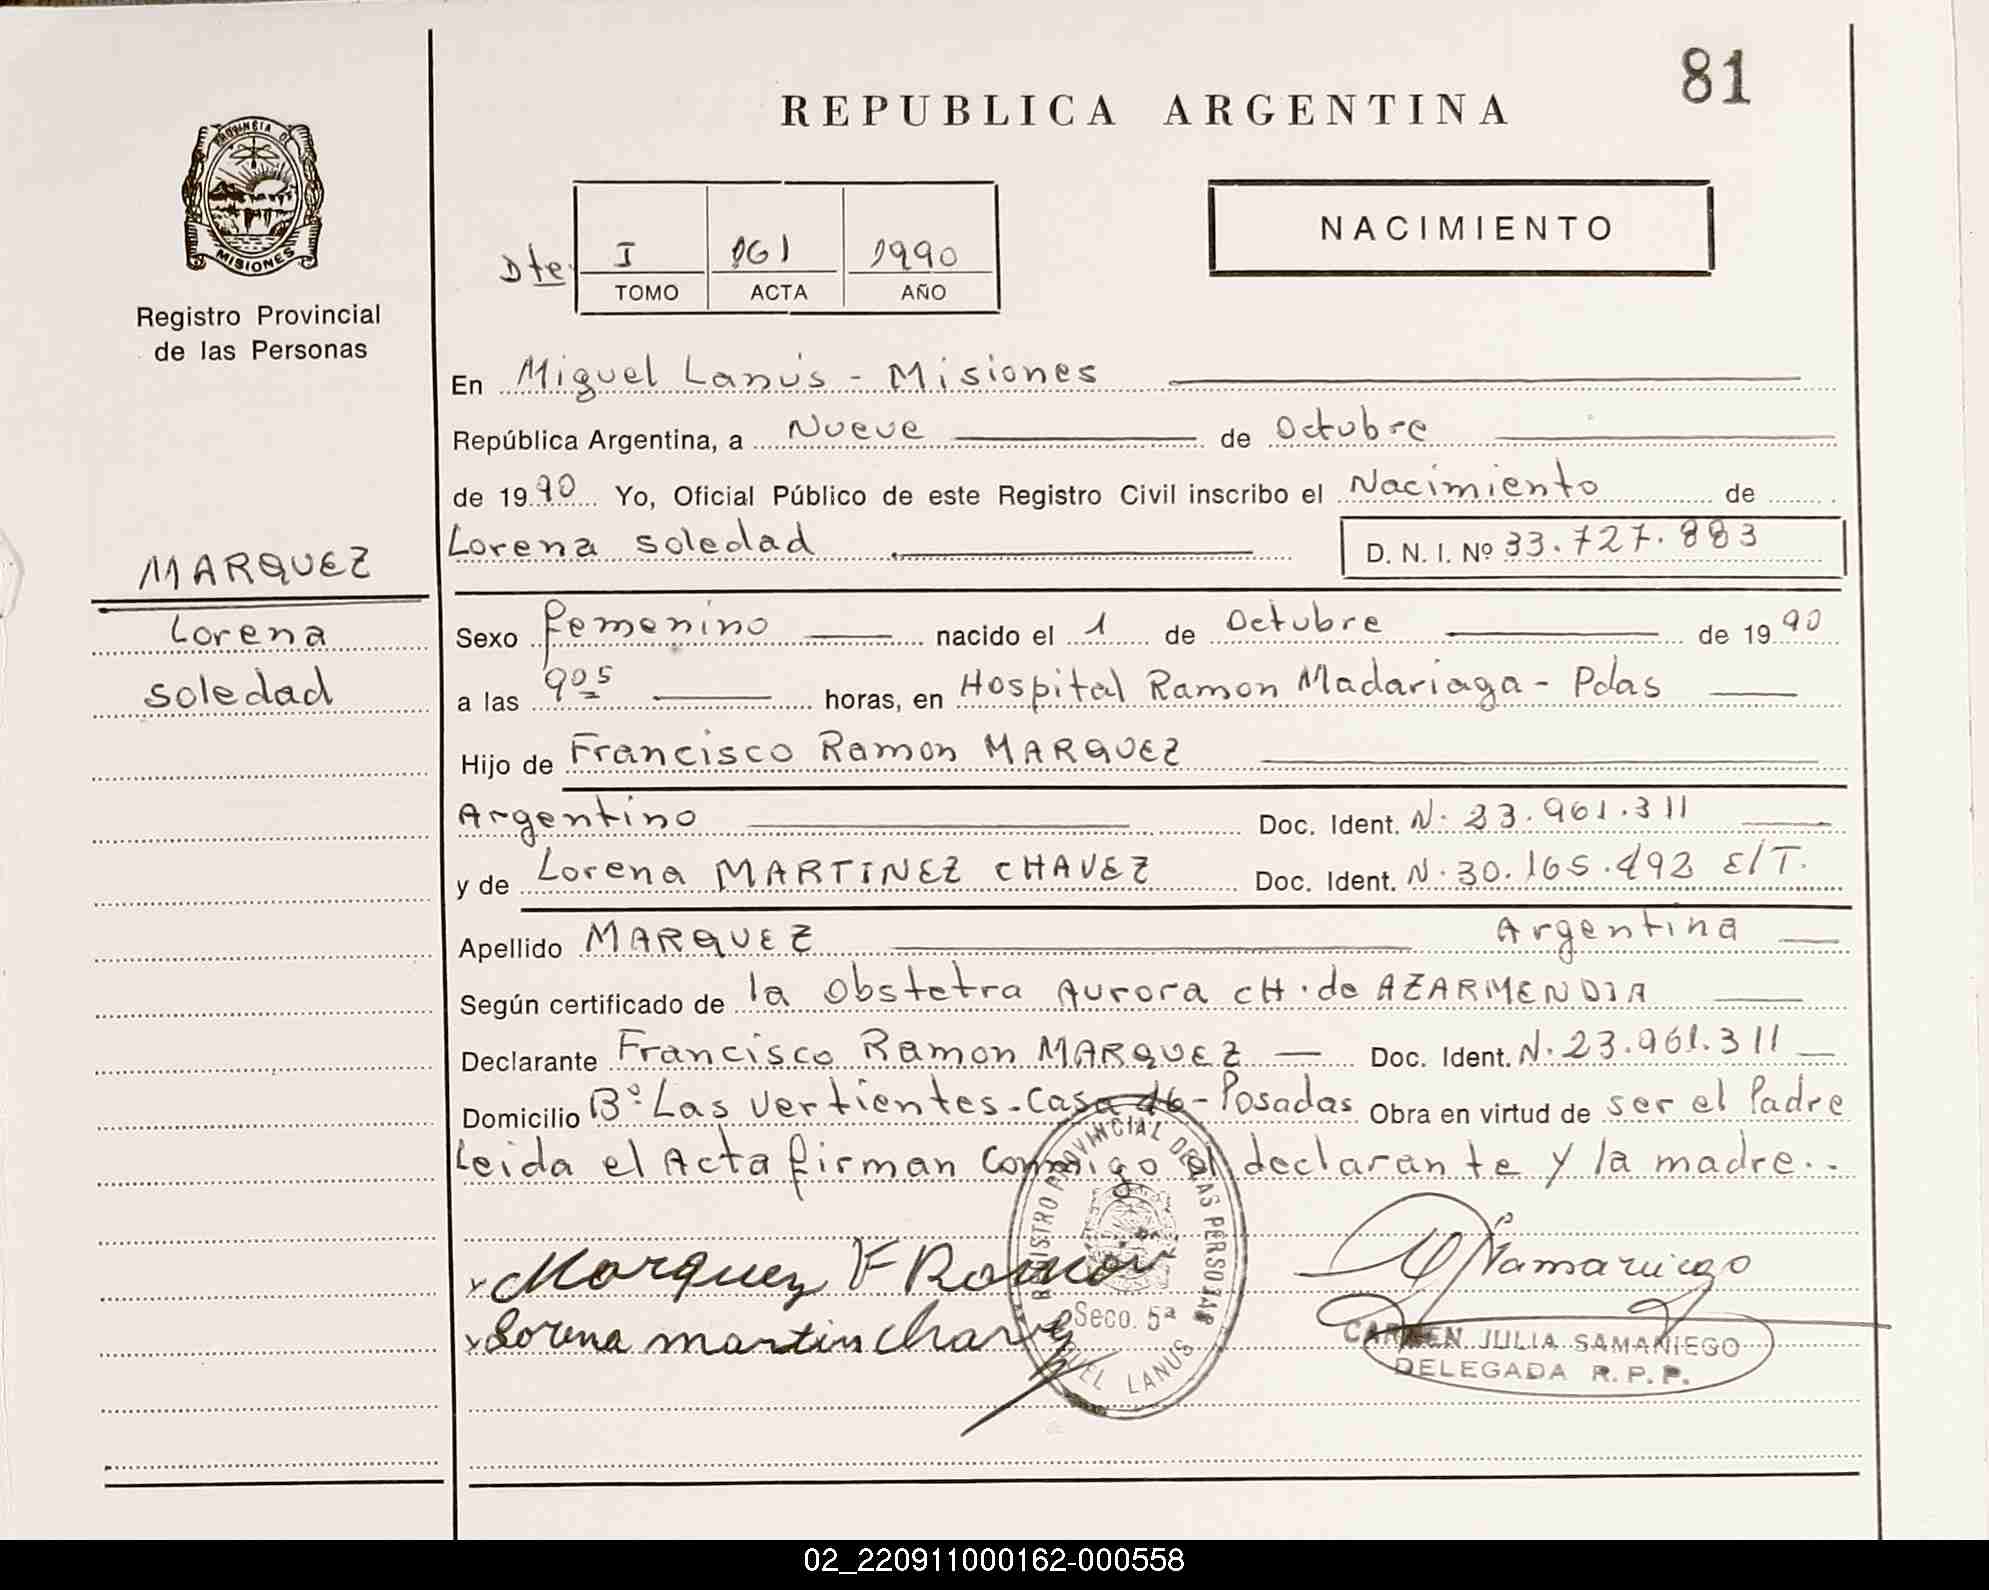 81
REPUBLICA ARGENTINA
NACIMIENTO
PROVINCIA DE
MISIONES
Registro Provincial
de las Personas
Dte. I 161 1990
TOMO ACTA AÑO
En Miguel Lanús - Misiones
República Argentina, a Nueve de Octubre
de 1990 Yo, Oficial Público de este Registro Civil inscribo el Nacimiento de
Lorena Soledad D. N. I. Nº 33.727.883
MARQUEZ
Lorena
Soledad
Sexo femenino nacido el 1 de Octubre de 1990
a las 905 horas, en Hospital Ramon Madariaga - Pdas
Hijo de Francisco Ramon MARQUEZ
Argentino Doc. Ident. N. 23.961.311
y de Lorena MARTINEZ CHAVEZ Doc. Ident. N. 30.165.492 E/T.
Apellido MARQUEZ Argentina
Según certificado de la Obstetra Aurora CH. de AZARMENDIA
Declarante Francisco Ramon MARQUEZ Doc. Ident. N. 23.961.311
Domicilio Bº Las Vertientes - Casa 16 - Posadas Obra en virtud de ser el Padre
Leida el Acta firman conmigo el declarante y la madre..
x Marquez F Ramon
x Lorena martin Chavez
REGISTRO PROVINCIAL DE LAS PERSONAS
Secc. 5ª
MIGUEL LANUS
CARMEN JULIA SAMANIEGO
DELEGADA R. P. P.
02_220911000162-000558